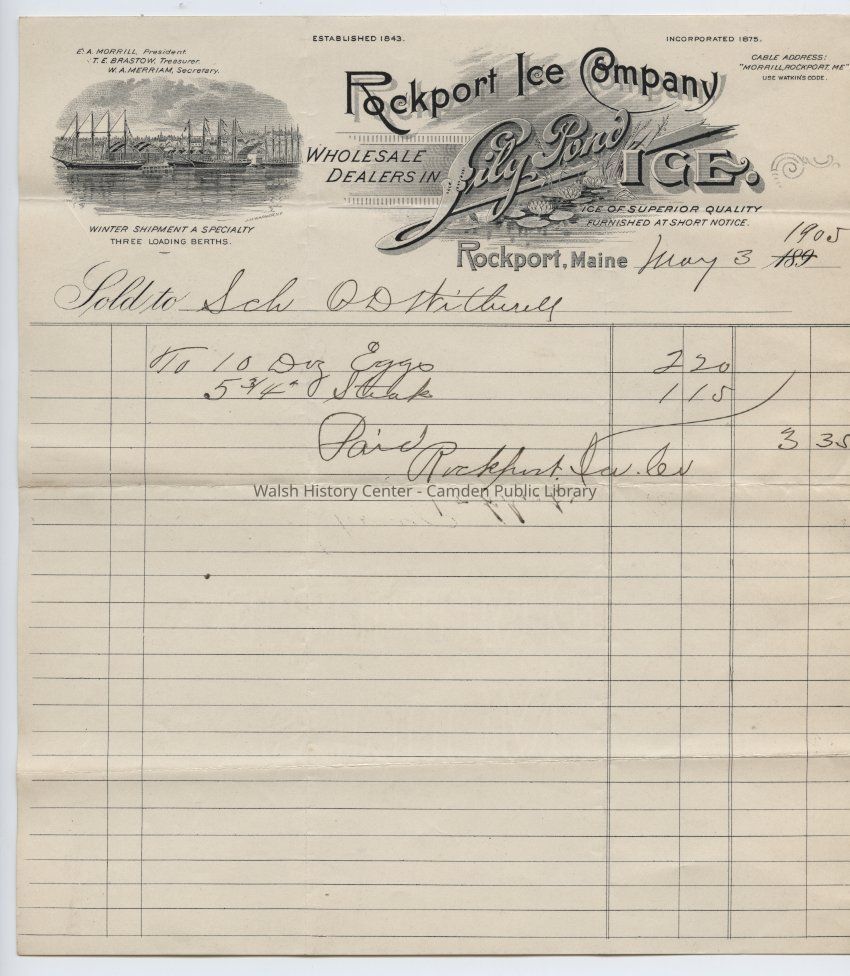 ESTABLISHED 1843.
INCORPORATED 1875.
E. A. MORRILL, President.
T. E. BRASTOW, Treasurer.
W. A. MERRIAM, Secretary.
CABLE ADDRESS:
"MORRILL, ROCKPORT, ME"
USE WATKIN'S CODE.
Rockport Ice Company
WHOLESALE
DEALERS IN
Lily Pond ICE.
ICE OF SUPERIOR QUALITY
FURNISHED AT SHORT NOTICE.
WINTER SHIPMENT A SPECIALTY
THREE LOADING BERTHS.
Rockport, Maine May 3 189 1905
Sold to Sch O D Witherell
To 10 Doz Eggs 2 20
5 3/4 # Steak 1 15
Paid 3 35
Rockport Ice Co
Walsh History Center - Camden Public Library